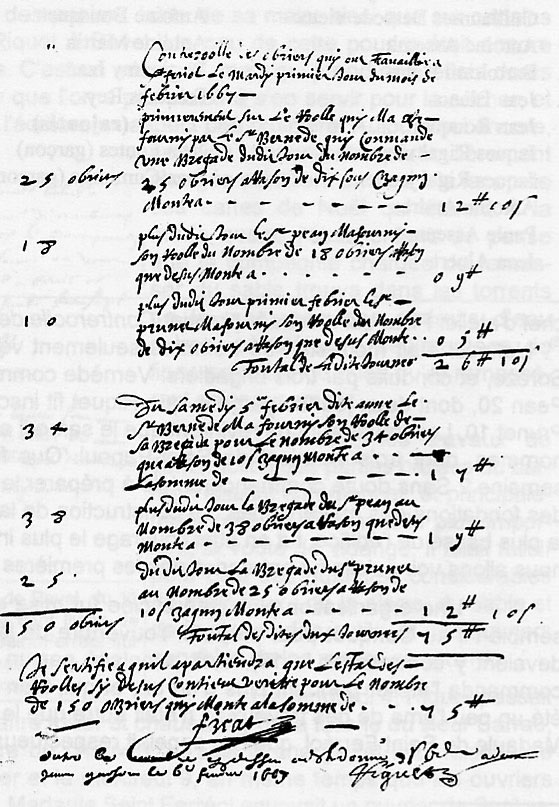 Conterolle des obriers quy ont travailler a
feriol le mardy primier jour du mois de
febrier 1667
primieremant sur le rolle quy m'a
fourny par le Sr Bernede quy comande
une Bregade dudit jour du nombre de
25 obriers 25 obriers a rason de dix sous chaqun
monte a - - - - 12 # 10 s
plus dudit jour le Sr pean m'a fourny
18 son rolle du nombre de 18 obriers
que desus monte a - - 09 #
plus dudit jour primier febrier le Sr
10 prunet m'a fourny son rolle du nombre
de dix obriers a rason que desus monte 05 #
Tontal de la dite journee 26 # 10 s
Du samedy 5e febrier dite anne le
34 Sr Bernede m'a fourny son rolle de
sa Bregade pour le nombre de 34 obriers
que a rason de 10 s chaqun monte a
la somme de - - 17 #
plus dudit jour la Bregade du Sr pean du
38 nombre de 38 obriers a rason que desus
monte a - - 19 #
dudit jour la Bregade du Sr prunet
25 au nombre de 25 obriers a rason de
10 s chaqun monte a 12 # 10 s
150 obriers Tontal des dites dux journees 75 #
Je sertifie a quil apartiendra que lestal des
rolles sy desus contient verite pour le nombre
de 150 obriers quy monte a la somme de 75 #
le 6e febrier 1667